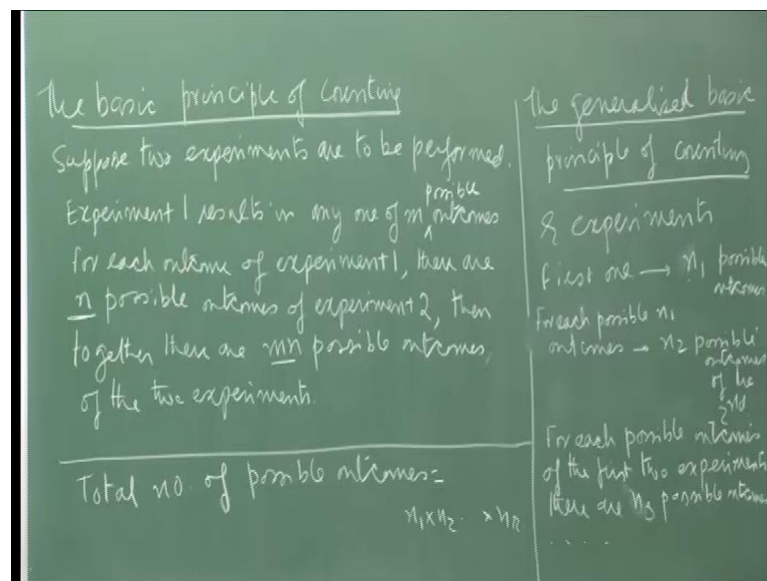 The basic principle of Counting
Suppose two experiments are to be performed.
possible
Experiment 1 results in any one of m ^ outcomes
for each outcome of experiment 1, there are
n possible outcomes of experiment 2, then
together there are mn possible outcomes,
of the two experiments.
Total no. of possible outcomes =
n₁ x n₂ . x nr
The generalised basic
principle of counting
r experiments
first one → n₁ possible
outcomes
For each possible n₁
outcomes → n₂ possible
outcomes
of the
2nd
For each possible outcomes
of the first two experiments
there are n₃ possible outcomes
.....